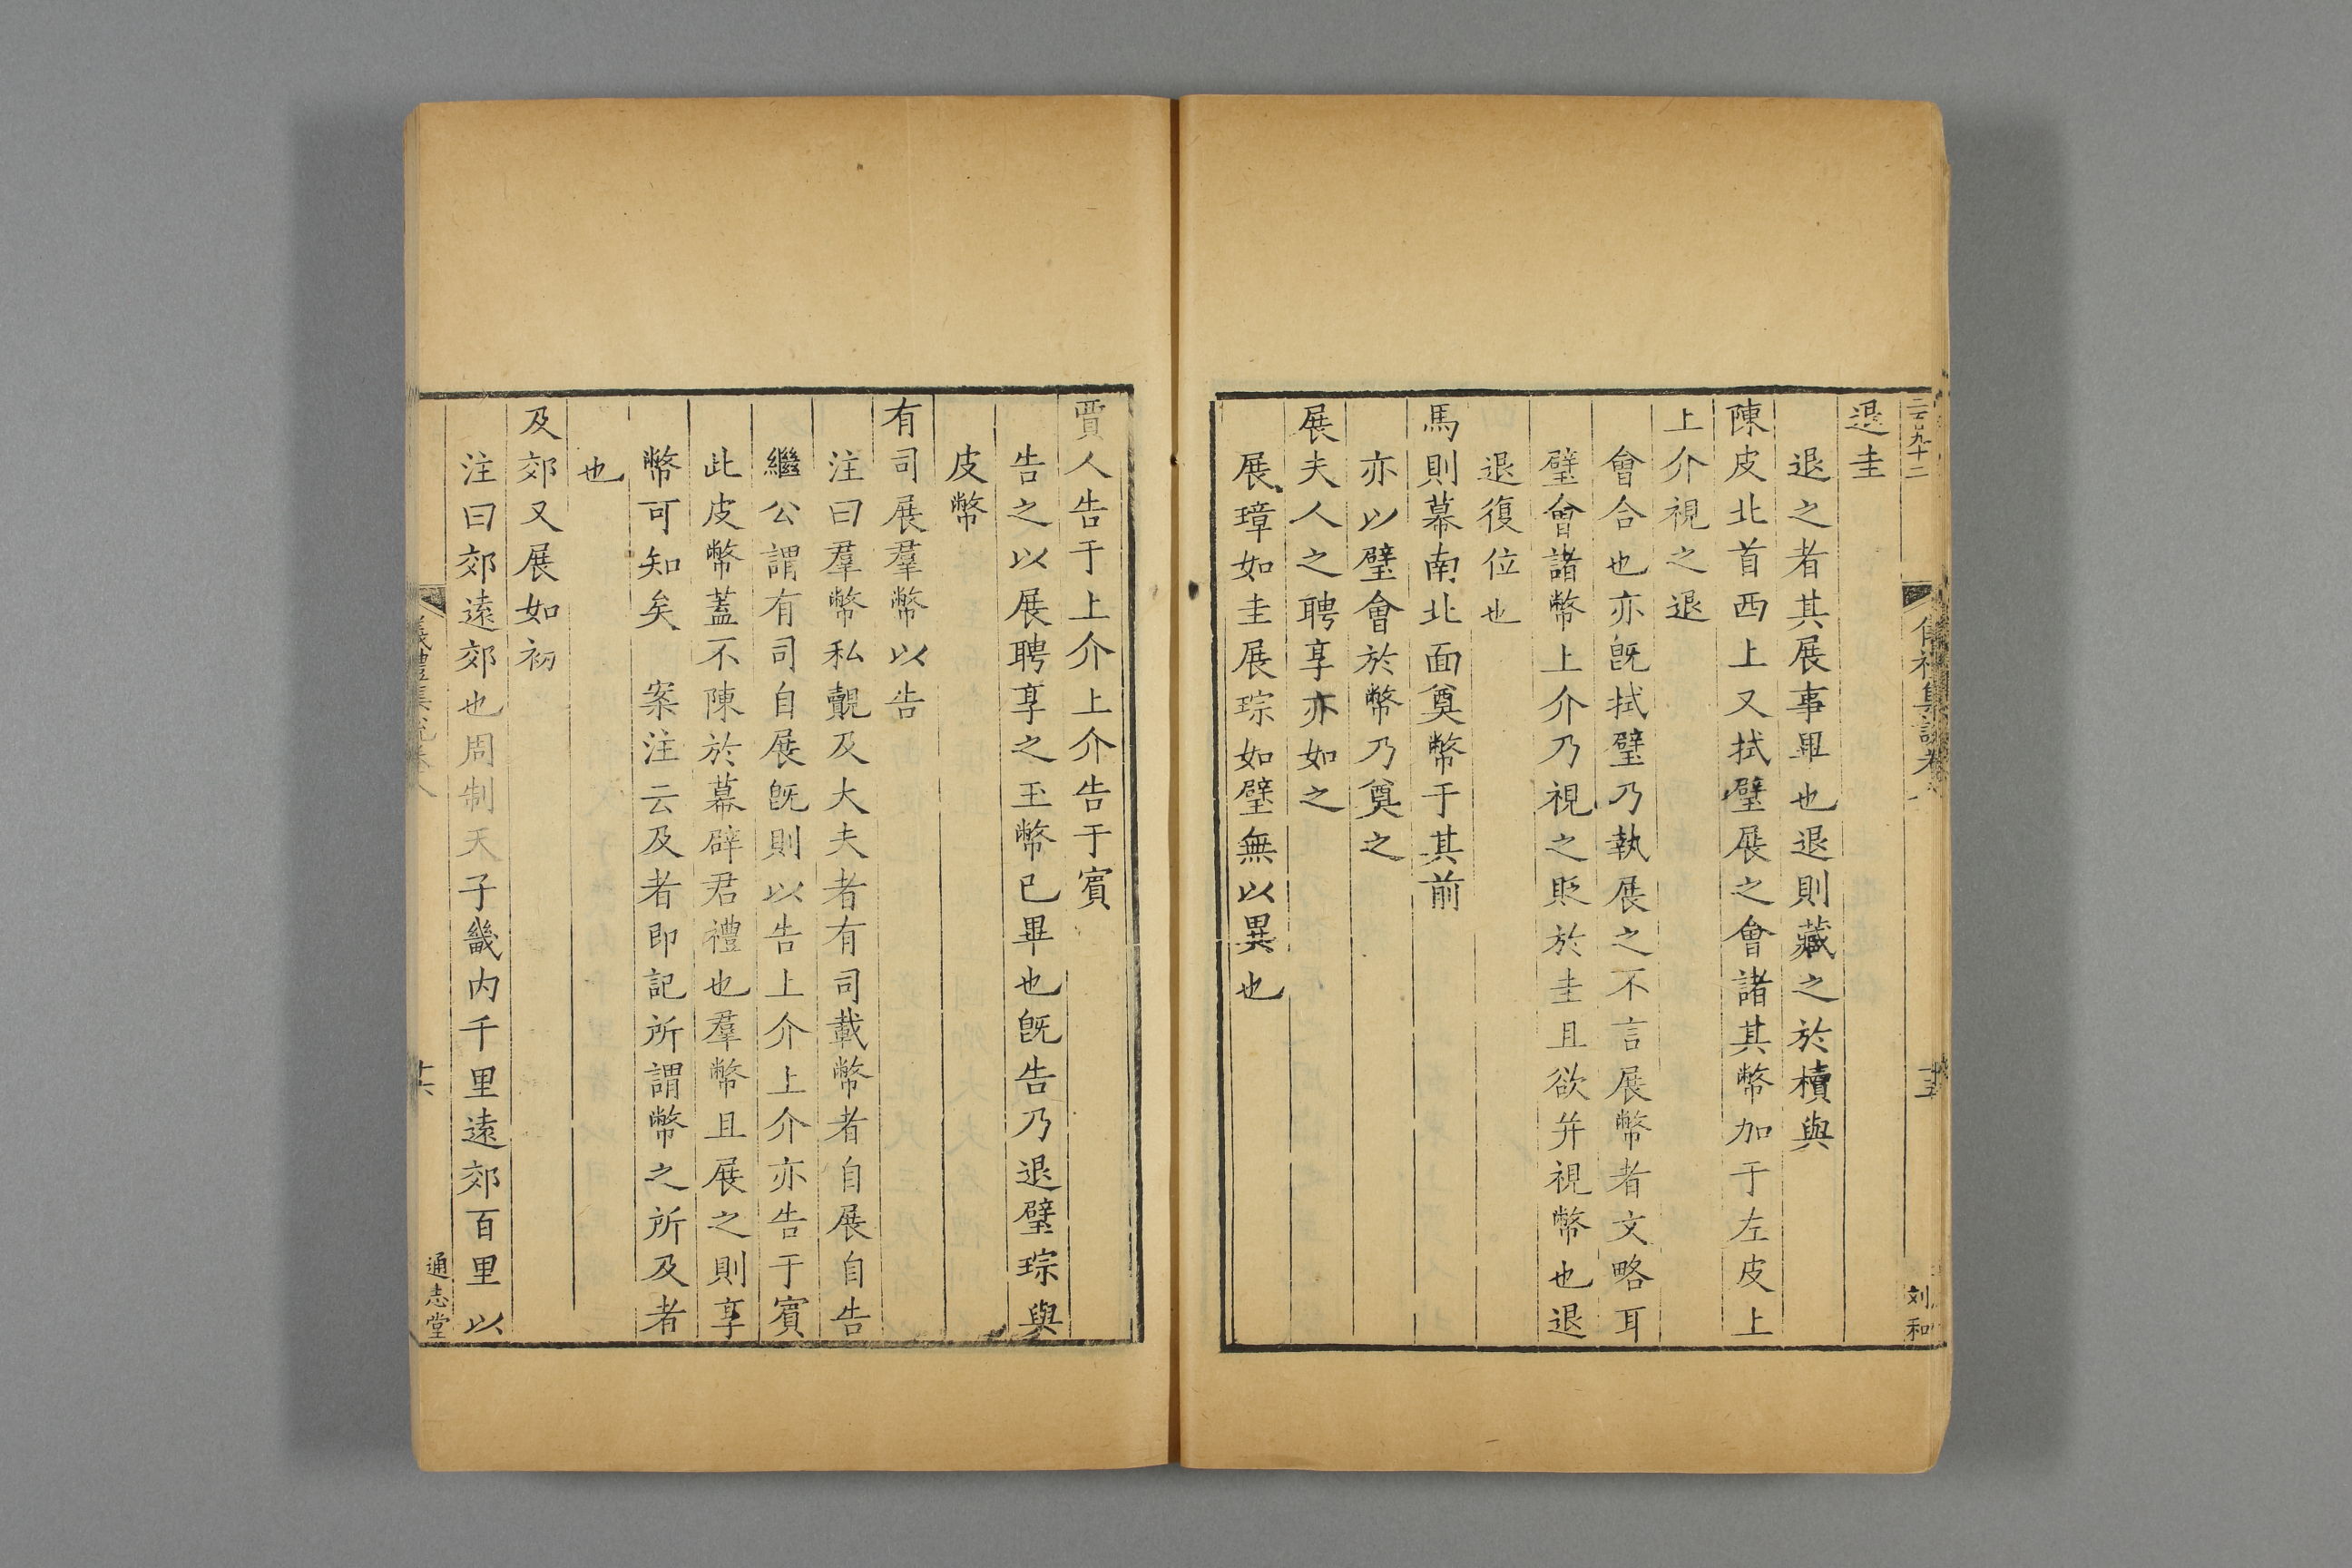 二百九十二
儀禮集說卷八
十五
刘和
退圭
退之者其展事畢也退則藏之於櫝與
陳皮北首西上又拭璧展之會諸其幣加于左皮上
上介視之退
會合也亦旣拭璧乃執展之不言展幣者文略耳
璧會諸幣上介乃視之貶於圭且欲并視幣也退
退復位也
馬則幕南北面奠幣于其前
亦以璧會於幣乃奠之
展夫人之聘享亦如之
展璋如圭展琮如璧無以異也
賈人告于上介上介告于賓
告之以展聘享之玉幣已畢也旣告乃退璧琮與
皮幣
有司展羣幣以告
注曰羣幣私覿及大夫者有司載幣者自展自告
繼公謂有司自展旣則以告上介上介亦告于賓
此皮幣蓋不陳於幕辟君禮也羣幣且展之則享
幣可知矣　案注云及者即記所謂幣之所及者
也
及郊又展如初
注曰郊遠郊也周制天子畿内千里遠郊百里以
儀禮集說卷八
十六
通志堂